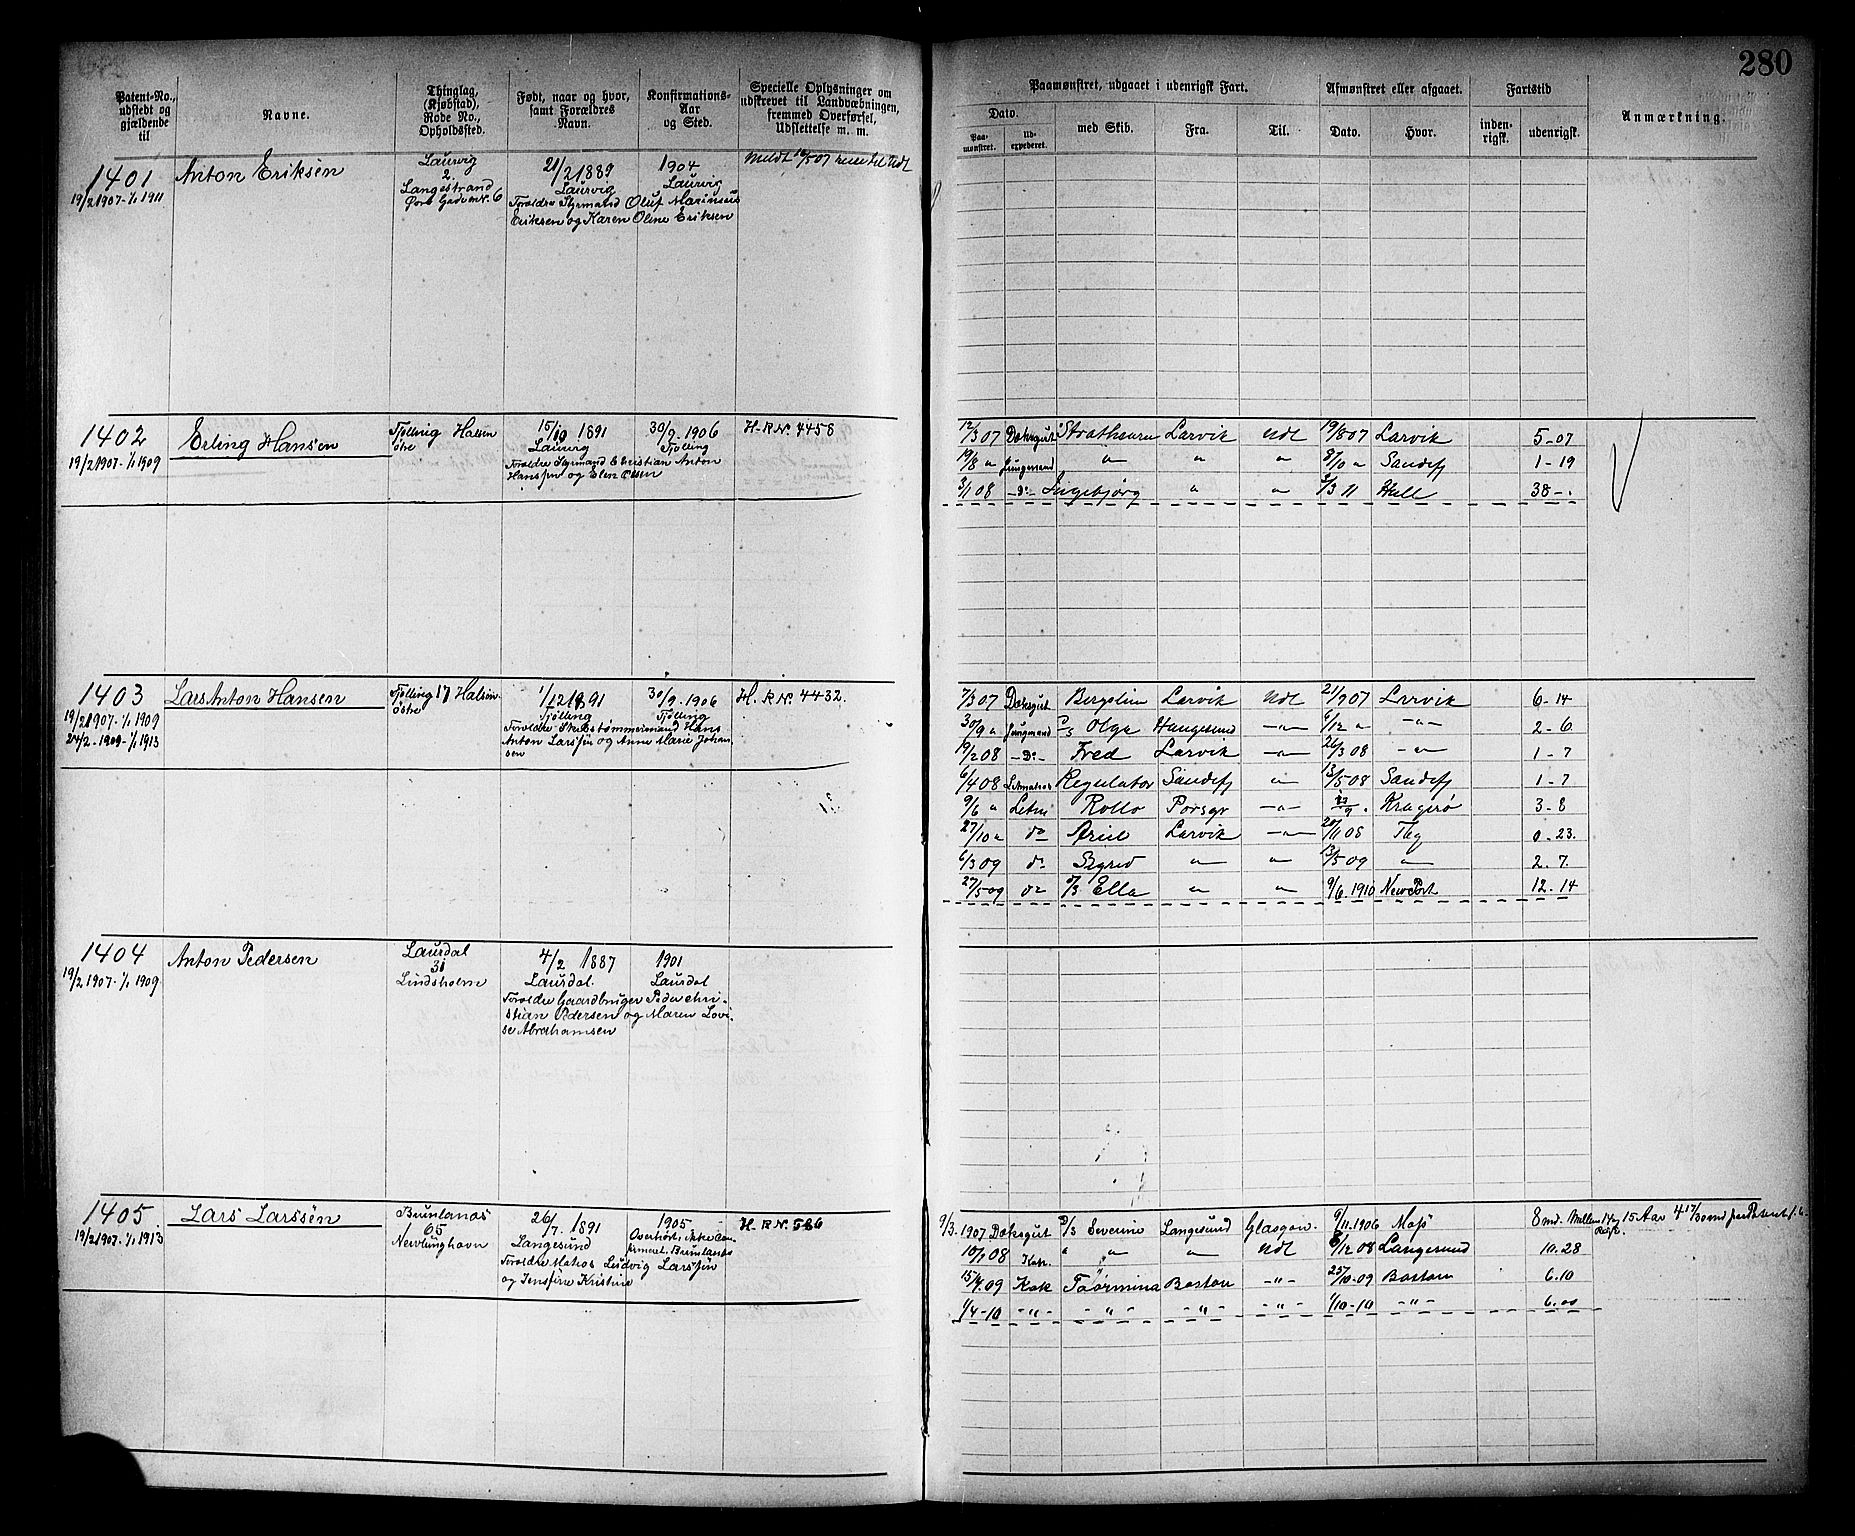 280
Patent-No., udstedt og gjældende til
Navne.
Thinglag, (Kjøbstad), Rode No., Opholdssted.
Født, naar og hvor, samt Forældres Navn.
Konfirmations-Aar og Sted.
Specielle Oplysninger om udskrevet til Landvæbningen, fremmed Overførsel, Udslettelse m. m.
Paamønstret, udgaaet i udenrigsk Fart.
Dato.
Paa-mønstret.
Ud-expederet.
med Skib.
Fra.
Til.
Afmønstret eller afgaaet.
Dato.
Hvor.
Fartstid
inden-rigsk.
udenrigsk.
Anmærkning.
1401
19/2 1907-1/1 1911
Anton Eriksen
Laurvig
2.
Langestrand
6
21/2 1889
Laurvig
1904
Laurvig
Forældre Styrmand Oluf Marinius
Eriksen og Karen Oline Eriksen
Meldt 16/5 07 reise til Udl
1402
19/2 1907-1/1 1909
Erling Hansen
Tjølling Halsen
østre
15/10 1891
Laurvig
30/9-1906
Tjølling
Forældre Styrmand Christian Anton
Hanssen og Elen Olsen
H-R No. 4458
12/3 07 Dæksgut Strathearn Larvik Udl 19/8 07 Larvik 5-07
19/8 " Jungmand " " " 8/10 " Sandefj 1-19
3/1 08 -Do- Ingebjørg " " /3 11 Hull 38-.
1403
19/2 1907-1/1 1909
24/2-1909-1/1 1913
Lars Anton Hansen
Tjølling 17 Halsen
østre
1/12 1891
Tjølling
30/9-1906
Tjølling
Forældre Skibstømmermand Hans
Anton Larssen og Anne Marie Johan-
sen
H.-R No. 4432.
7/3 07 Dæksgut Bergslien Larvik Udl 21/9 07 Larvik 6-14
30/9 " Jungmand D/S Olga Haugesund -"- 6/12 " -"- 2-6
19/2 08 -Do- Fred Larvik -"- 26/3 08 -"- 1-7
6/4 08 Letmatros Regulator Sandefj " 13/5 08 Sandefj 1-7
9/6 " Letm Rollo Porsgr -"- /9. Kragerø 3-8
27/10 " do Ariel Larvik -"- 20/11 08 Tbg 0-23.
6/3 09 do Sigrid " " 13/5 09 " 2.7.
27/5 09 do Ella " " 9/6.1910 New Port. 12-14
1404
19/2 1907-1/1 1909.
Anton Pedersen
Laurdal
31
Lindsholm
4/2 1887
Laurdal.
1901
Laurdal
Forældre Gaardbruger Peder Chri-
stian Pedersen og Maren Lovi-
se Abrahamsen
1405
19/2 1907-1/1 1913
Lars Larssen
Brunlanæs
65
Nevlunghavn
26/7 1891
Langesund
1905
Overhørt, ikke Con-
firmeret. Brunlanæs
Forældre Matros Ludvig Larssen
og Jensine Kristine
H. R No. 586
9/3.1907 Dæksgut D/S Severin Langesund Glasgow. 9/11.1906 Moss 8 md.
10/1 08 Kok. " " " Udl /12 08 Langesund 10.28
15/4.09 Kok Taormina Boston -"- 25/10-09 Boston 6.10
1/4-10 -"- -"- -"- -"- 1/10-10 -"- 6.00